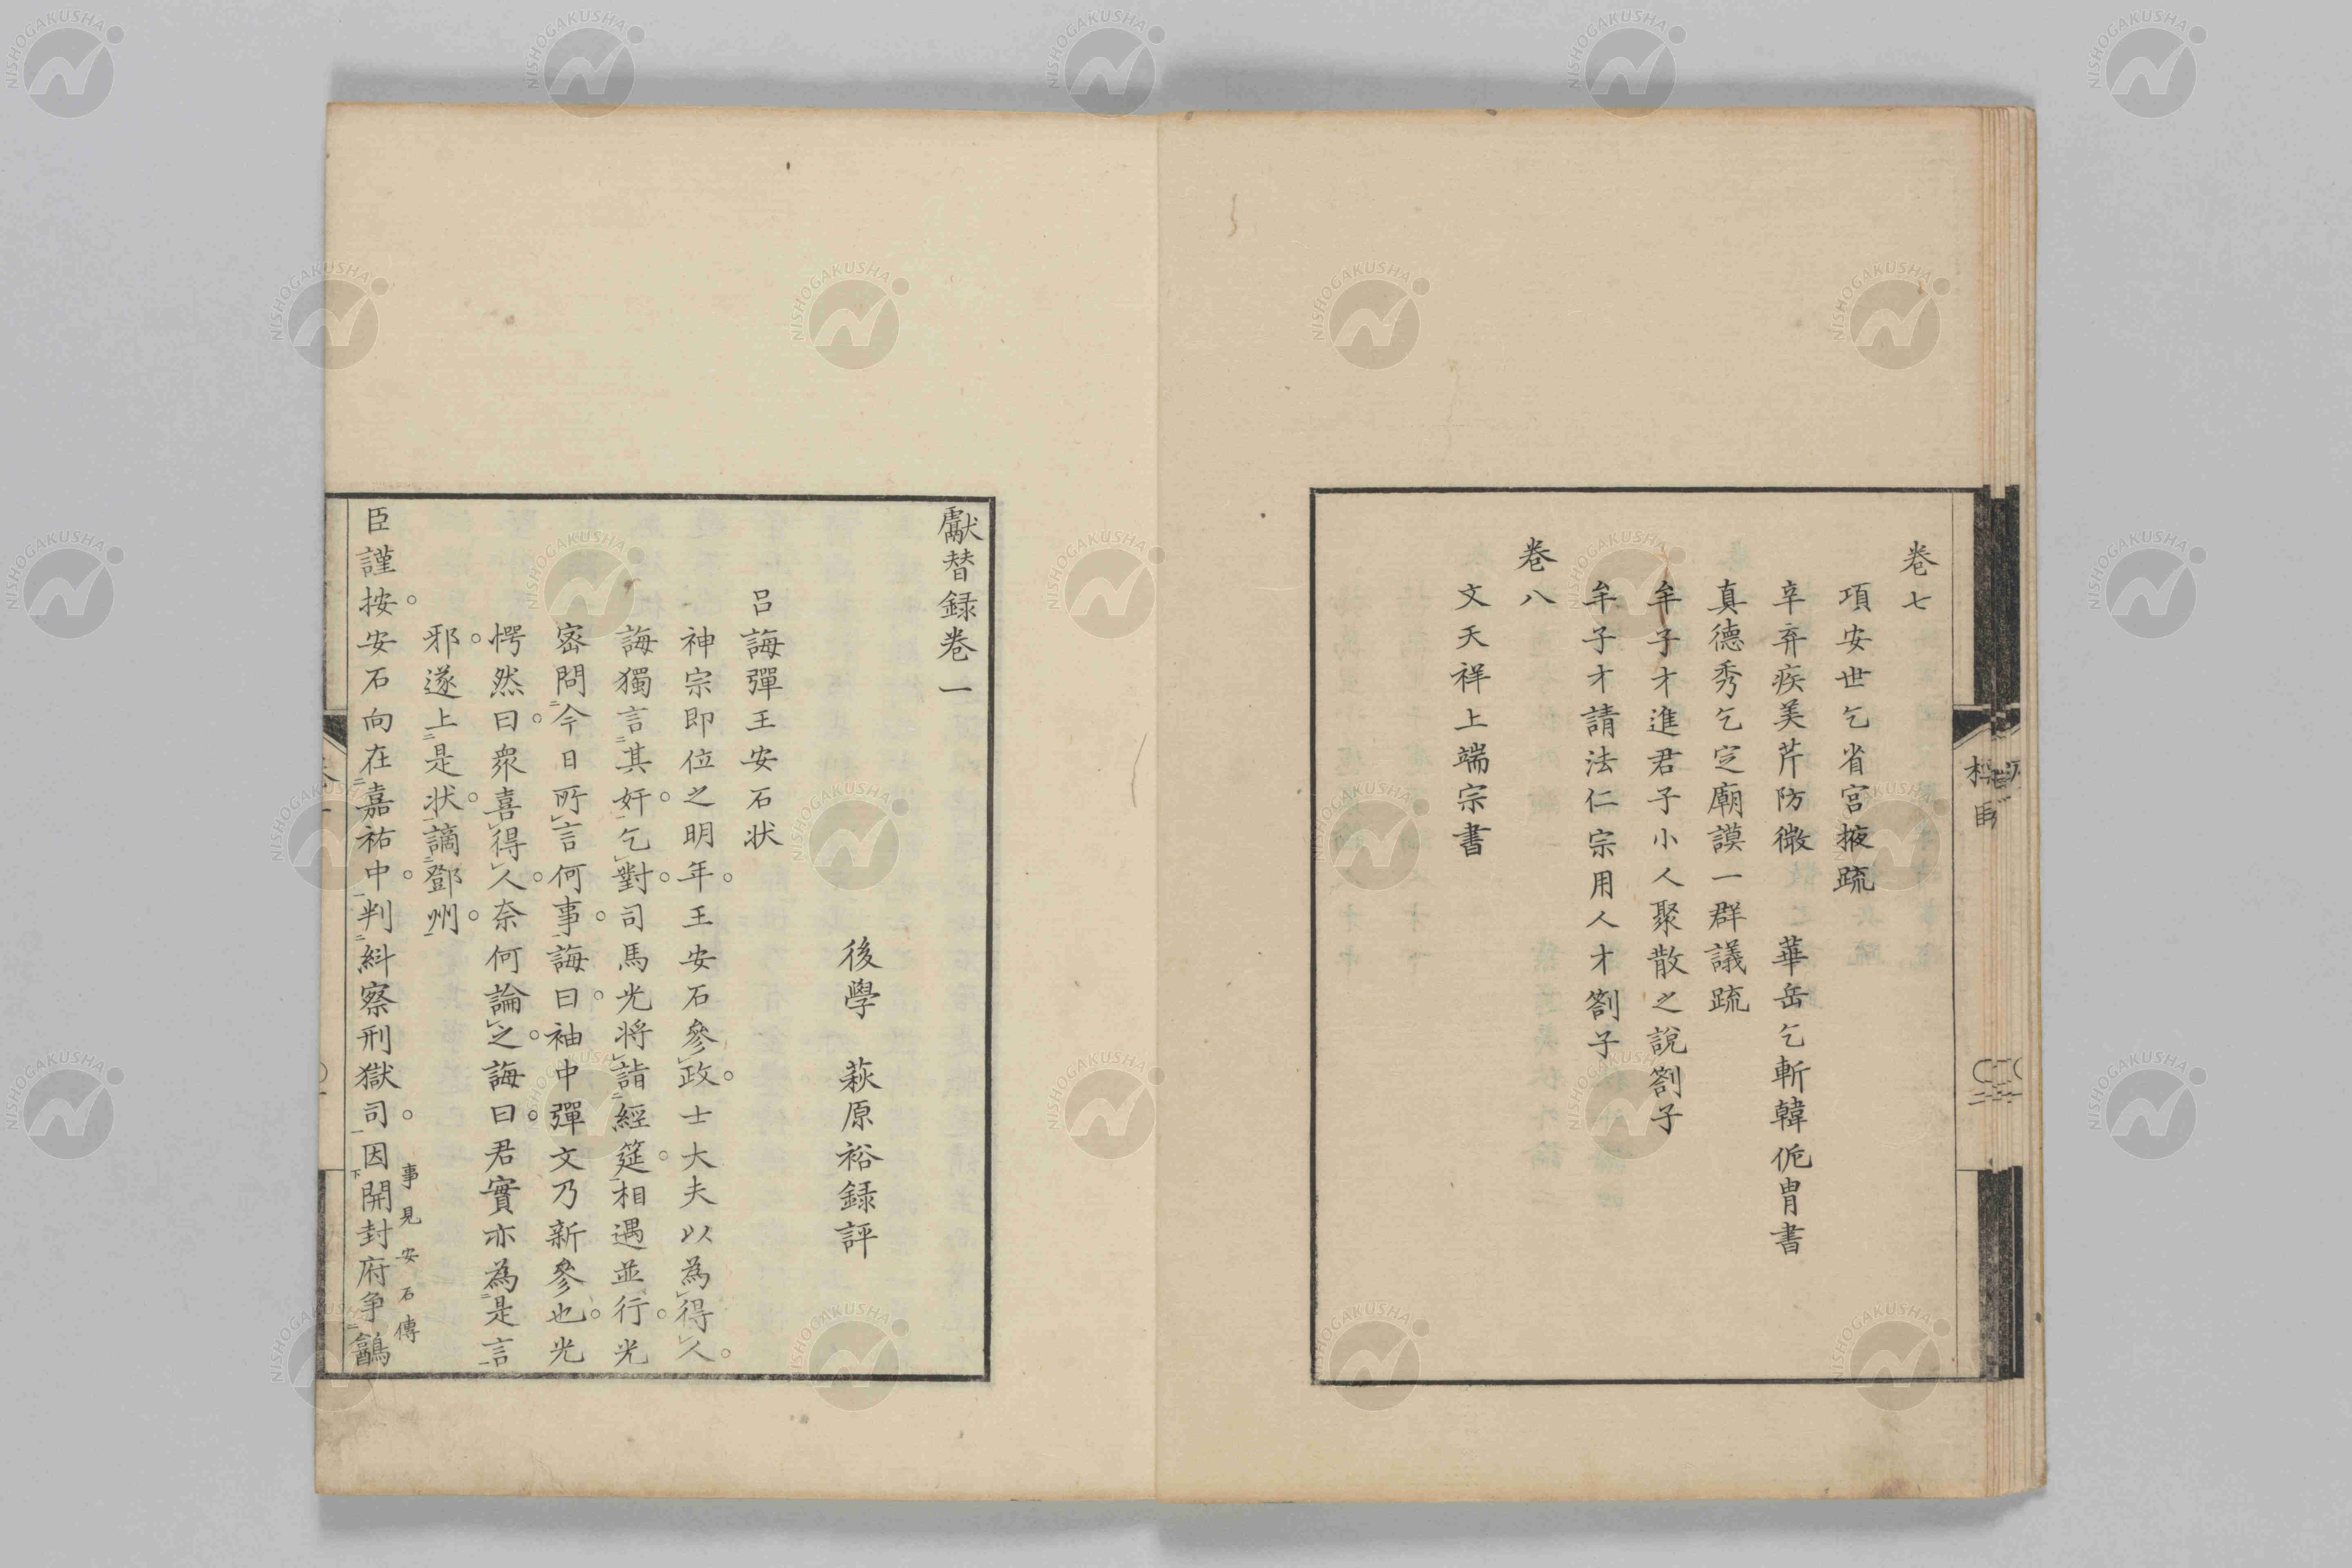 卷七
項安世乞省宮掖疏
辛弃疾美芹防微　華岳乞斬韓侂冑書
真德秀乞定廟謨一群議疏
牟子才進君子小人聚散之說劄子
牟子才請法仁宗用人才劄子
卷八
文天祥上端宗書
獻替録卷一
後學　萩原裕録評
呂誨彈王安石状
神宗即位之明年。王安石參政。士大夫以為得人。
誨獨言其奸。乞對。司馬光将詣經筵。相遇並行。光
宻問今日所言何事。誨曰。袖中彈文乃新參也。光
愕然曰。衆喜得人。奈何論之。誨曰。君實亦為是言
邪。遂上是状。謫鄧州。
臣謹按。安石向在嘉祐中。判糾察刑獄司。因開封府争鶕
事見安石傳
NISHOGAKUSHA